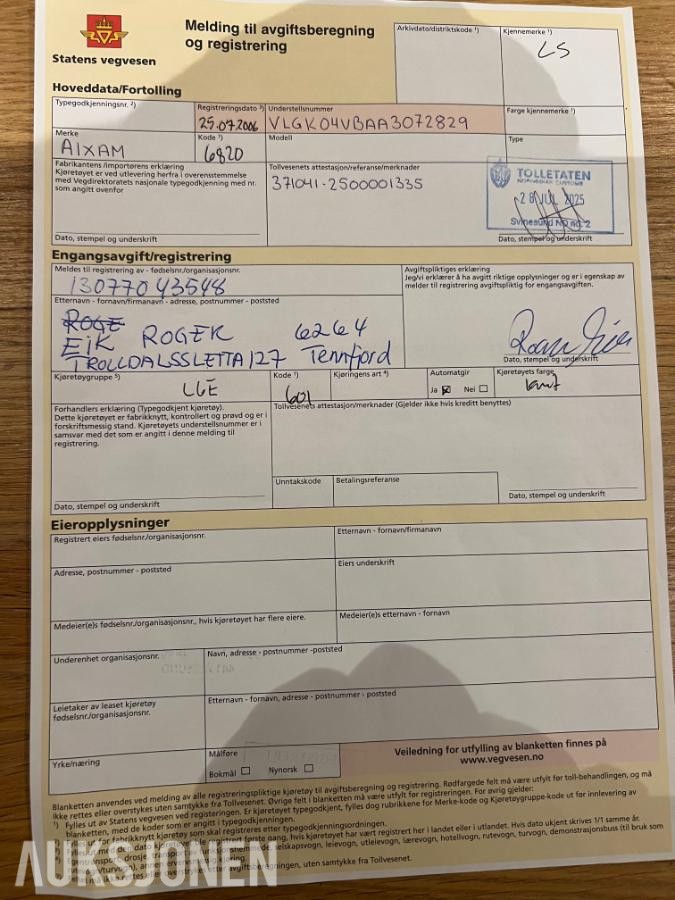 Statens vegvesen
Melding til avgiftsberegning
og registrering
Arkivdato/distriktskode ¹)
Kjennemerke ¹)
LS
Hoveddata/Fortolling
Typegodkjenningsnr. ²)
Registreringsdato ³)
25.07.2006
Understellsnummer
VLGK04VBAA3072829
Farge kjennemerke ¹)
Merke
AIXAM
Kode ¹)
6820
Modell
Type
Fabrikantens /importørens erklæring
Kjøretøyet er ved utlevering herfra i overensstemmelse
med Vegdirektoratets nasjonale typegodkjenning med nr.
som angitt ovenfor
Dato, stempel og underskrift
Tollvesenets attestasjon/referanse/merknader
371041-2500001335
TOLLETATEN
NORWEGIAN CUSTOMS
28 JUL 2025
Svinesund NO no. 2
Dato, stempel og underskrift
Engangsavgift/registrering
Meldes til registrering av - fødselsnr./organisasjonsnr.
13077043548
Etternavn - fornavn/firmanavn - adresse, postnummer - poststed
ROGE
EIK ROGER 6264
TROLLDALSSLETTA 127 Tennfjord
Avgiftspliktiges erklæring
Jeg/vi erklærer å ha avgitt riktige opplysninger og er i egenskap av
melder til registrering avgiftspliktig for engangsavgiften.
Dato, stempel og underskrift
Kjøretøygruppe ⁵)
L6E
Kode ¹)
601
Kjøringens art ⁴)
Automatgir
Ja ☒ Nei ☐
Kjøretøyets farge
Forhandlers erklæring (Typegodkjent kjøretøy).
Dette kjøretøyet er fabrikknytt, kontrollert og prøvd og er i
forskriftsmessig stand. Kjøretøyets understellsnummer er i
samsvar med det som er angitt i denne melding til
registrering.
Dato, stempel og underskrift
Tollvesenets attestasjon/merknader (Gjelder ikke hvis kreditt benyttes)
Unntakskode
Betalingsreferanse
Dato, stempel og underskrift
Eieropplysninger
Registrert eiers fødselsnr./organisasjonsnr.
Etternavn - fornavn/firmanavn
Adresse, postnummer - poststed
Eiers underskrift
Medeier(e)s fødselsnr./organisasjonsnr., hvis kjøretøyet har flere eiere.
Medeier(e)s etternavn - fornavn
Underenhet organisasjonsnr.
Navn, adresse - postnummer -poststed
Leietaker av leaset kjøretøy
fødselsnr./organisasjonsnr.
Etternavn - fornavn, adresse - postnummer - poststed
Yrke/næring
Målføre
Bokmål ☐ Nynorsk ☐
Veiledning for utfylling av blanketten finnes på
www.vegvesen.no
Blanketten anvendes ved melding av alle registreringspliktige kjøretøy til avgiftsberegning og registrering. Rødfargede felt må være utfylt for toll-behandlingen, og må
ikke rettes eller overstykes uten samtykke fra Tollvesenet. Øvrige felt i blanketten må være utfylt for registreringen. For øvrig gjelder:
¹) Fylles ut av Statens vegvesen ved registreringen. Er kjøretøyet typegodkjent, fylles dog rubrikkene for Merke-kode og Kjøretøygruppe-kode ut for innlevering av
blanketten, med de koder som er angitt i typegodkjenningen.
AUKSJONEN